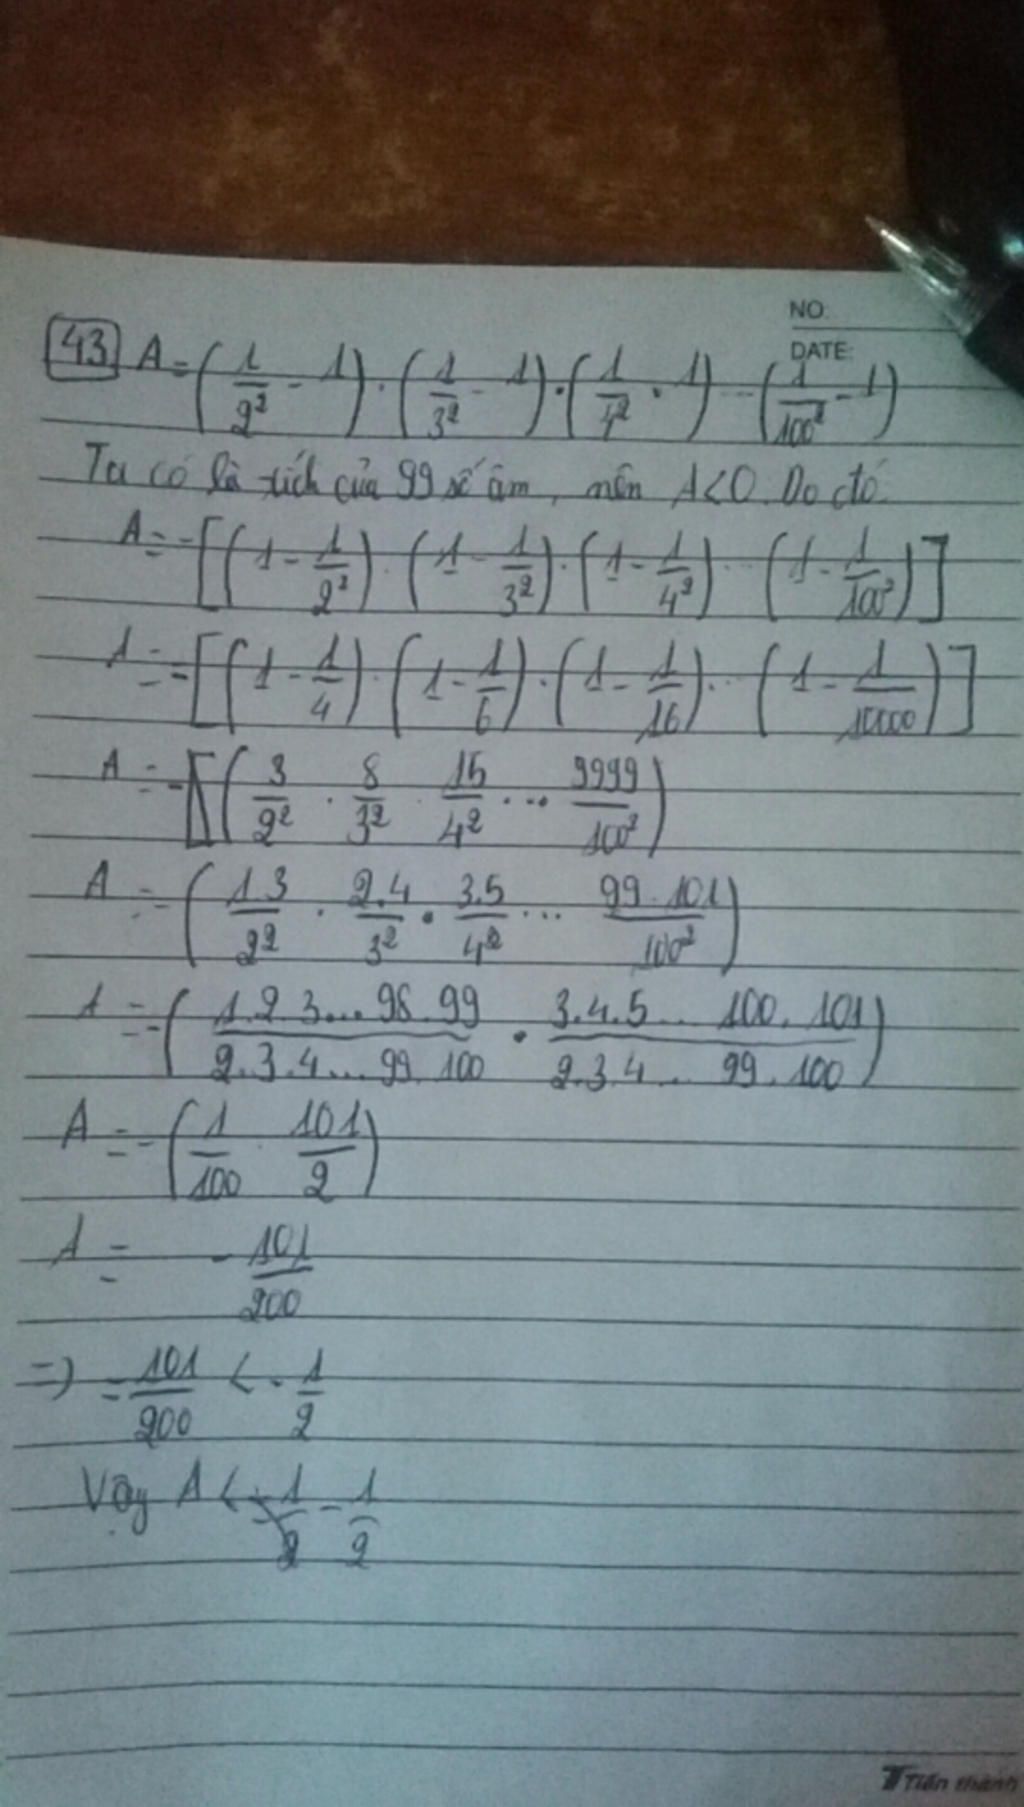 NO:
DATE:
43 A = (1/2² - 1) . (1/3² - 1) . (1/4² . 1) ... (1/100² - 1)
Ta có là tích của 99 số âm, nên A < 0. Do đó
A = -[(1 - 1/2²) . (1 - 1/3²) . (1 - 1/4²) ... (1 - 1/100²)]
A = -[(1 - 1/4) . (1 - 1/6) . (1 - 1/16) ... (1 - 1/10000)]
A = -[(3/2² . 8/3² . 15/4² ... 9999/100²)
A = -(1.3/2² . 2.4/3² . 3.5/4² ... 99.101/100²)
A = -(1.2.3...98.99/2.3.4...99.100 . 3.4.5...100.101/2.3.4...99.100)
A = -(1/100 . 101/2)
A = -101/200
=> -101/200 < -1/2
Vậy A < -1/2
Tiến thành